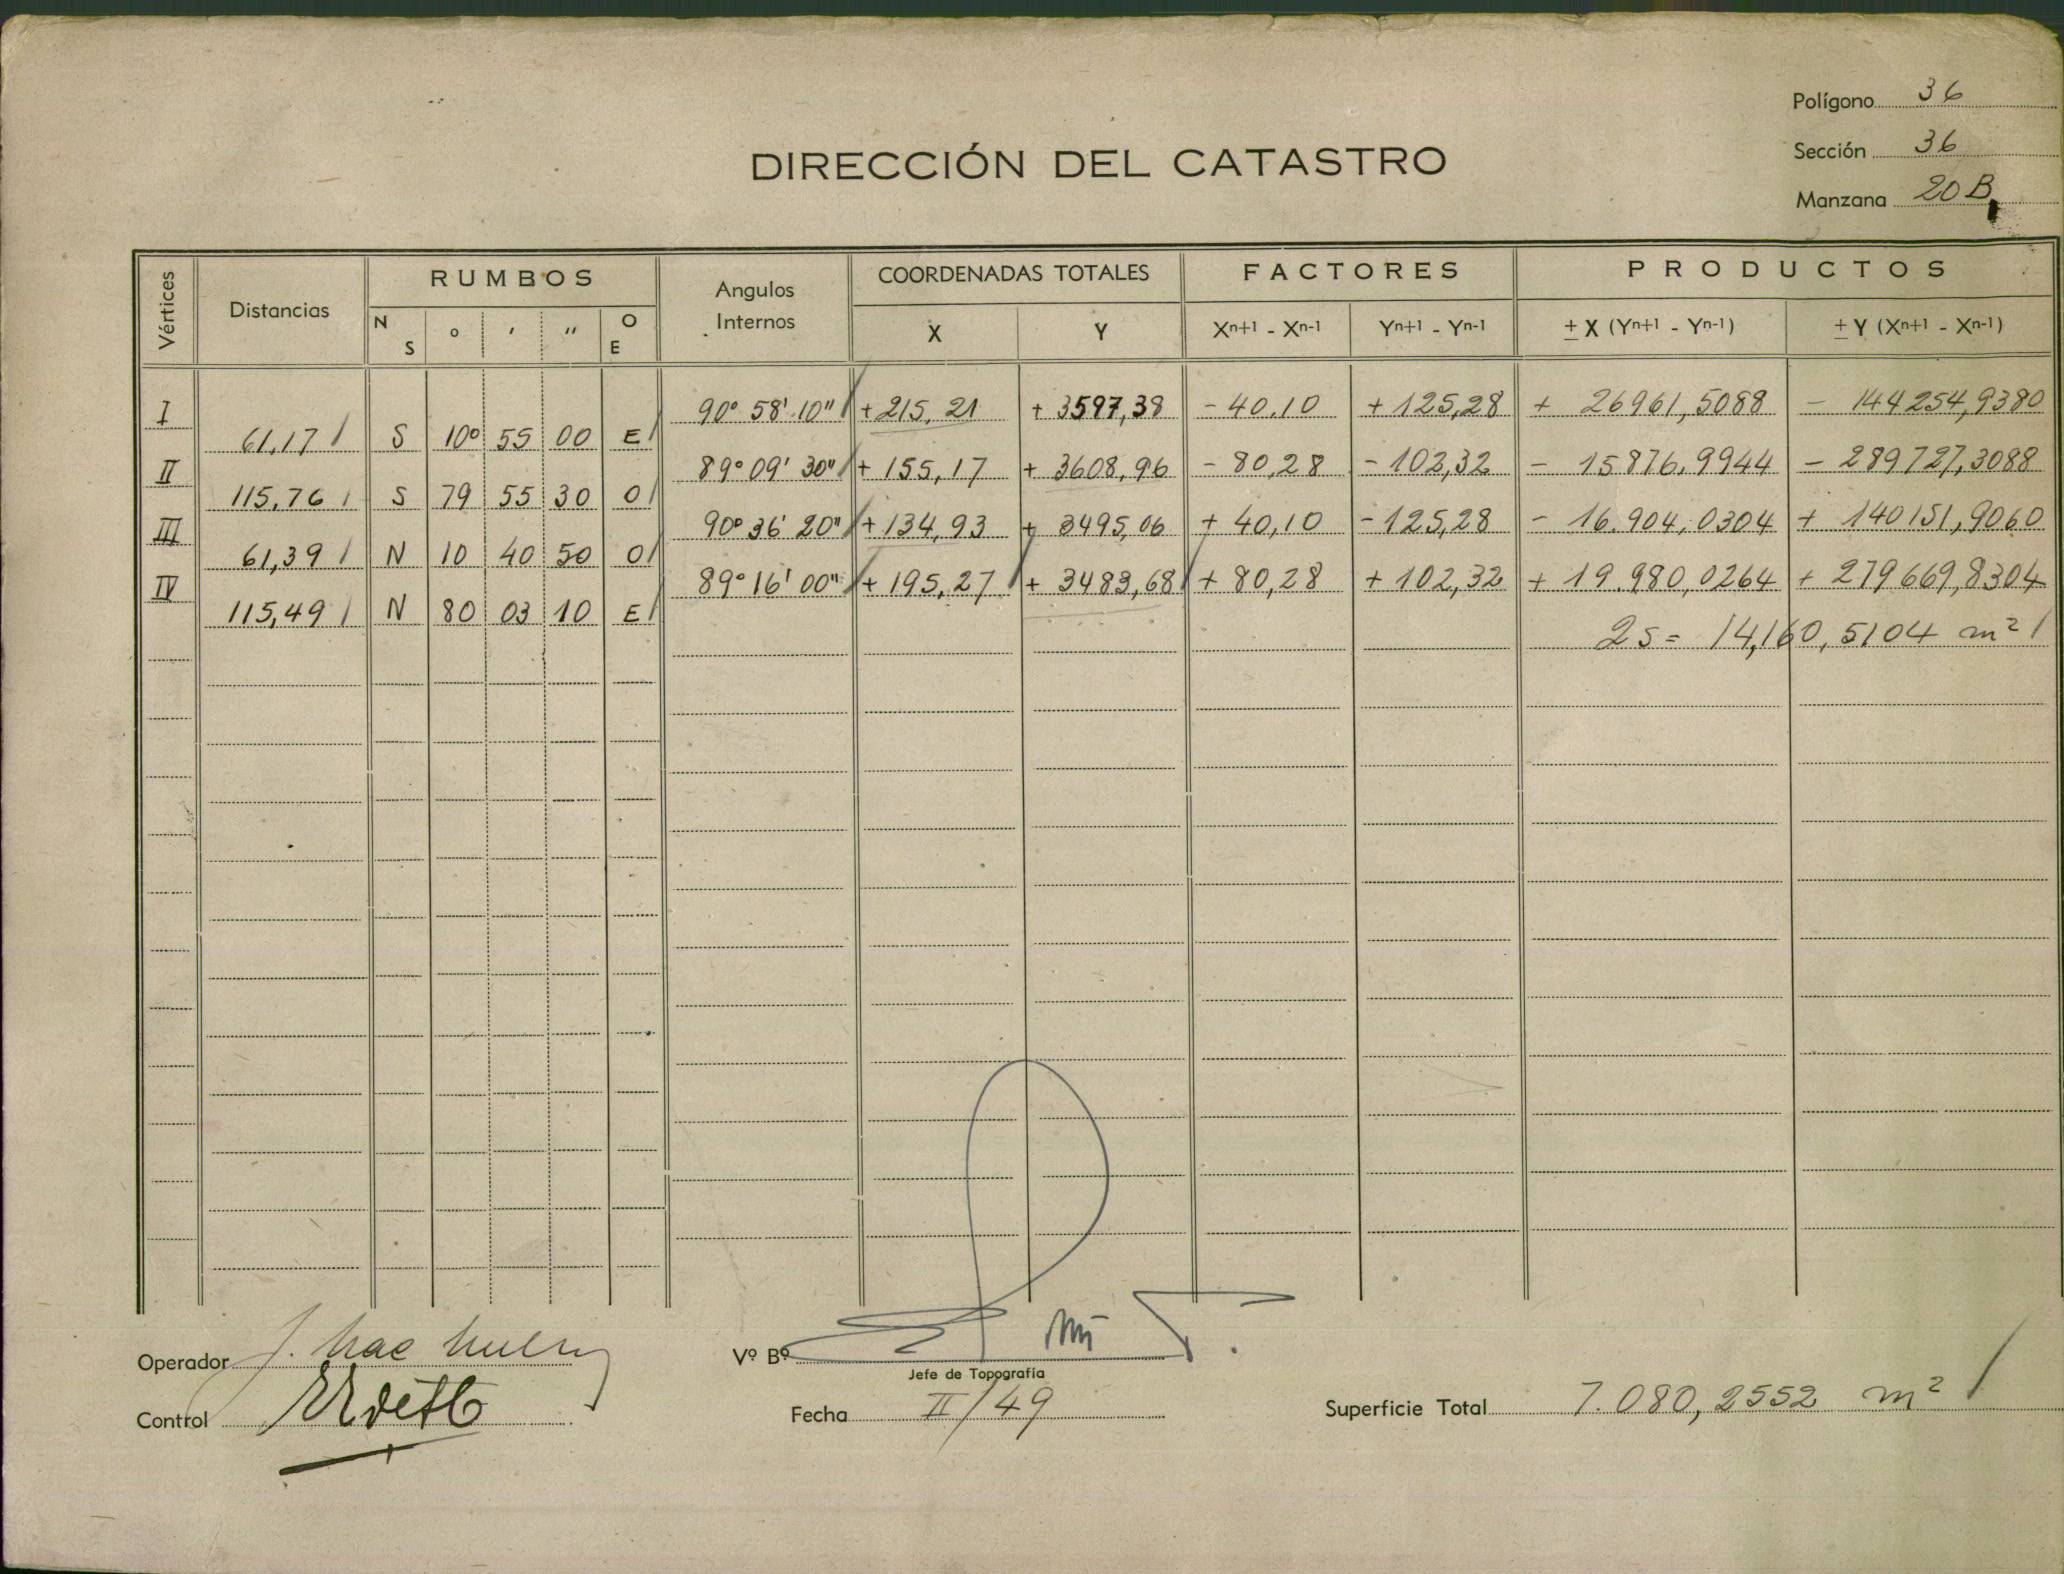 Polígono 36
Sección 36
Manzana 20 B
DIRECCIÓN DEL CATASTRO
Vértices Distancias RUMBOS Angulos Internos COORDENADAS TOTALES FACTORES PRODUCTOS
N S ° ' '' O E X Y Xn+1 - Xn-1 Yn+1 - Yn-1 ± X (Yn+1 - Yn-1) ± Y (Xn+1 - Xn-1)
I 90° 58' 10" +215,21 +3597,38 -40,10 +125,28 + 26961,5088 - 144254,9380
61,17 S 10° 55 00 E
II 89° 09' 30" +155,17 +3608,96 -80,28 -102,32 - 15876,9944 - 289727,3088
115,76 S 79 55 30 O
III 90° 36' 20" +134,93 +3495,06 +40,10 -125,28 - 16.904,0304 + 140151,9060
61,39 N 10 40 50 O
IV 89° 16' 00" +195,27 +3483,68 +80,28 +102,32 + 19.980,0264 + 279669,8304
115,49 N 80 03 10 E
2S = 14,160,5104 m²
Operador J. Mac
Vº Bº
Jefe de Topografía
Control
Fecha II/49
Superficie Total 7.080,2552 m²